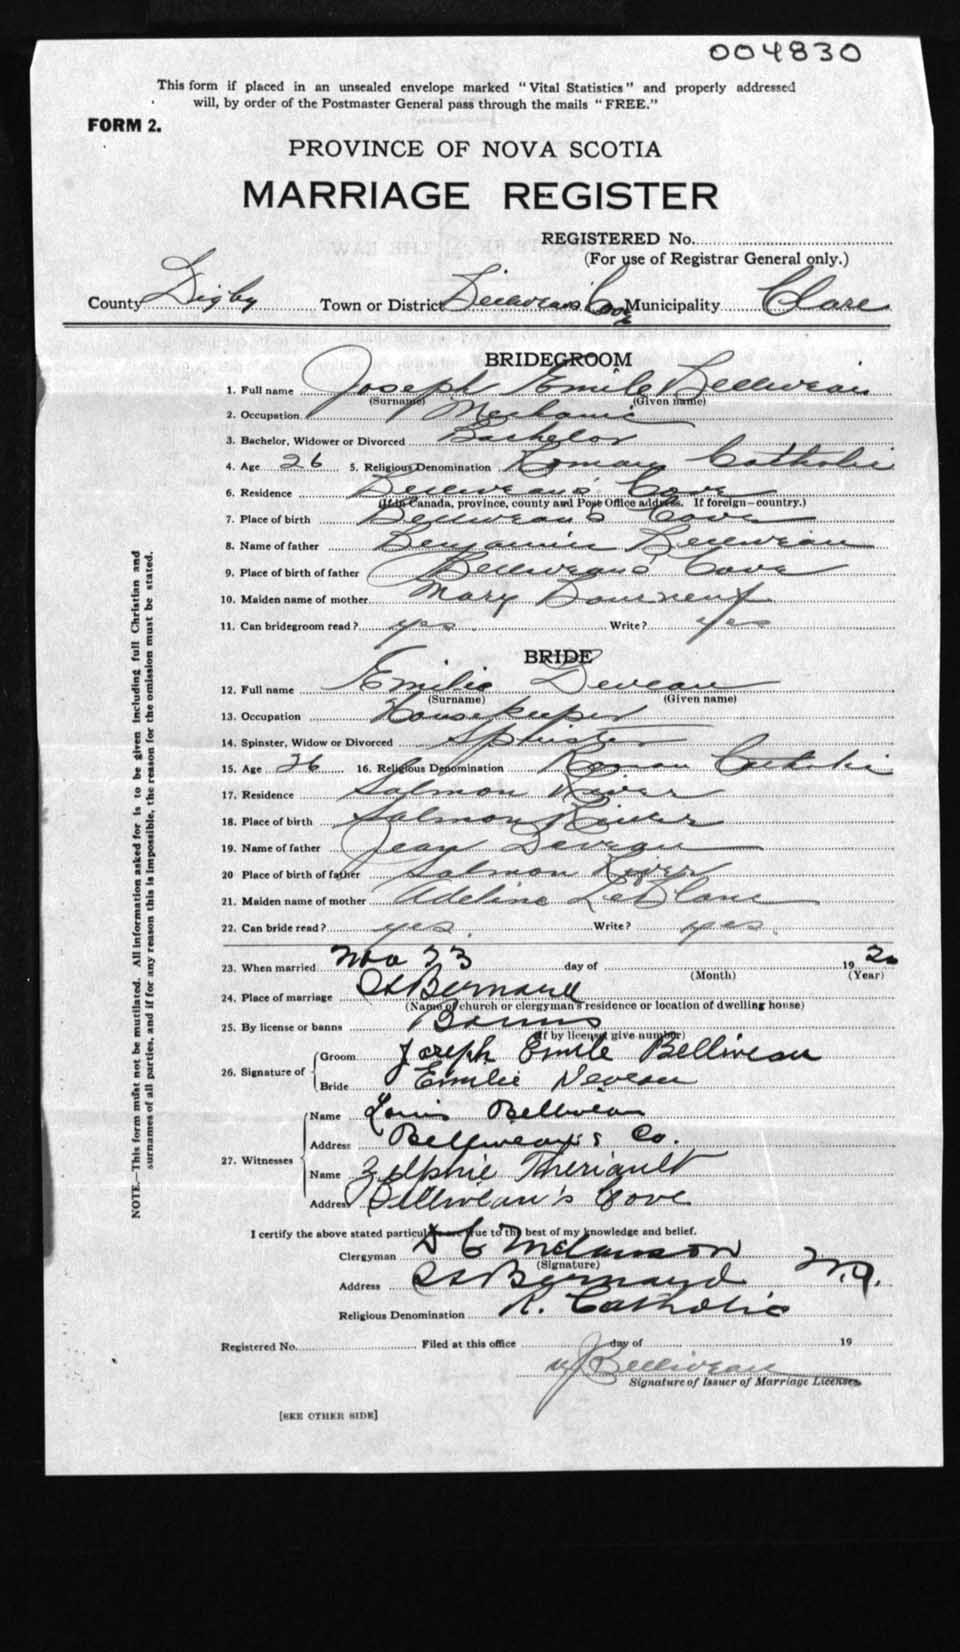 004830
This form if placed in an unsealed envelope marked "Vital Statistics" and properly addressed
will, by order of the Postmaster General pass through the mails "FREE."
FORM 2.
PROVINCE OF NOVA SCOTIA
MARRIAGE REGISTER
REGISTERED No.
(For use of Registrar General only.)
County Digby Town or District Belliveau's Cove Municipality Clare
BRIDEGROOM
1. Full name Joseph Emile Belliveau
(Surname) (Given name)
2. Occupation Mechanic
3. Bachelor, Widower or Divorced Bachelor
4. Age 26 5. Religious Denomination Roman Catholic
6. Residence Belliveau's Cove
(If in Canada, province, county and Post Office address. If foreign—country.)
7. Place of birth Belliveau's Cove
8. Name of father Benjamin Belliveau
9. Place of birth of father Belliveau's Cove
10. Maiden name of mother Mary Bourneuf
11. Can bridegroom read? yes Write? yes
BRIDE
12. Full name Emilie Deveau
(Surname) (Given name)
13. Occupation Housekeeper
14. Spinster, Widow or Divorced Spinster
15. Age 26 16. Religious Denomination Roman Catholic
17. Residence Salmon River
18. Place of birth Salmon River
19. Name of father Jean Deveau
20 Place of birth of father Salmon River
21. Maiden name of mother Adeline LeBlanc
22. Can bride read? yes. Write? yes.
23. When married Nov 23 day of 1920
(Month) (Year)
24. Place of marriage St Bernard
(Name of church or clergyman's residence or location of dwelling house)
25. By license or banns Banns
(If by license give number)
26. Signature of
Groom Joseph Emile Belliveau
Bride Emilie Deveau
27. Witnesses
Name Louis Belliveau
Address Belliveau's Co.
Name Zulphie Theriault
Address Belliveau's Cove
I certify the above stated particulars are true to the best of my knowledge and belief.
Clergyman D C Melanson
(Signature)
Address St Bernard N.S.
Religious Denomination R. Catholic
Registered No. Filed at this office day of 19
Belliveau
Signature of Issuer of Marriage Licenses
[SEE OTHER SIDE]
NOTE.—This form must not be mutilated. All information asked for is to be given including full Christian and
surnames of all parties, and if for any reason this is impossible, the reason for the omission must be stated.